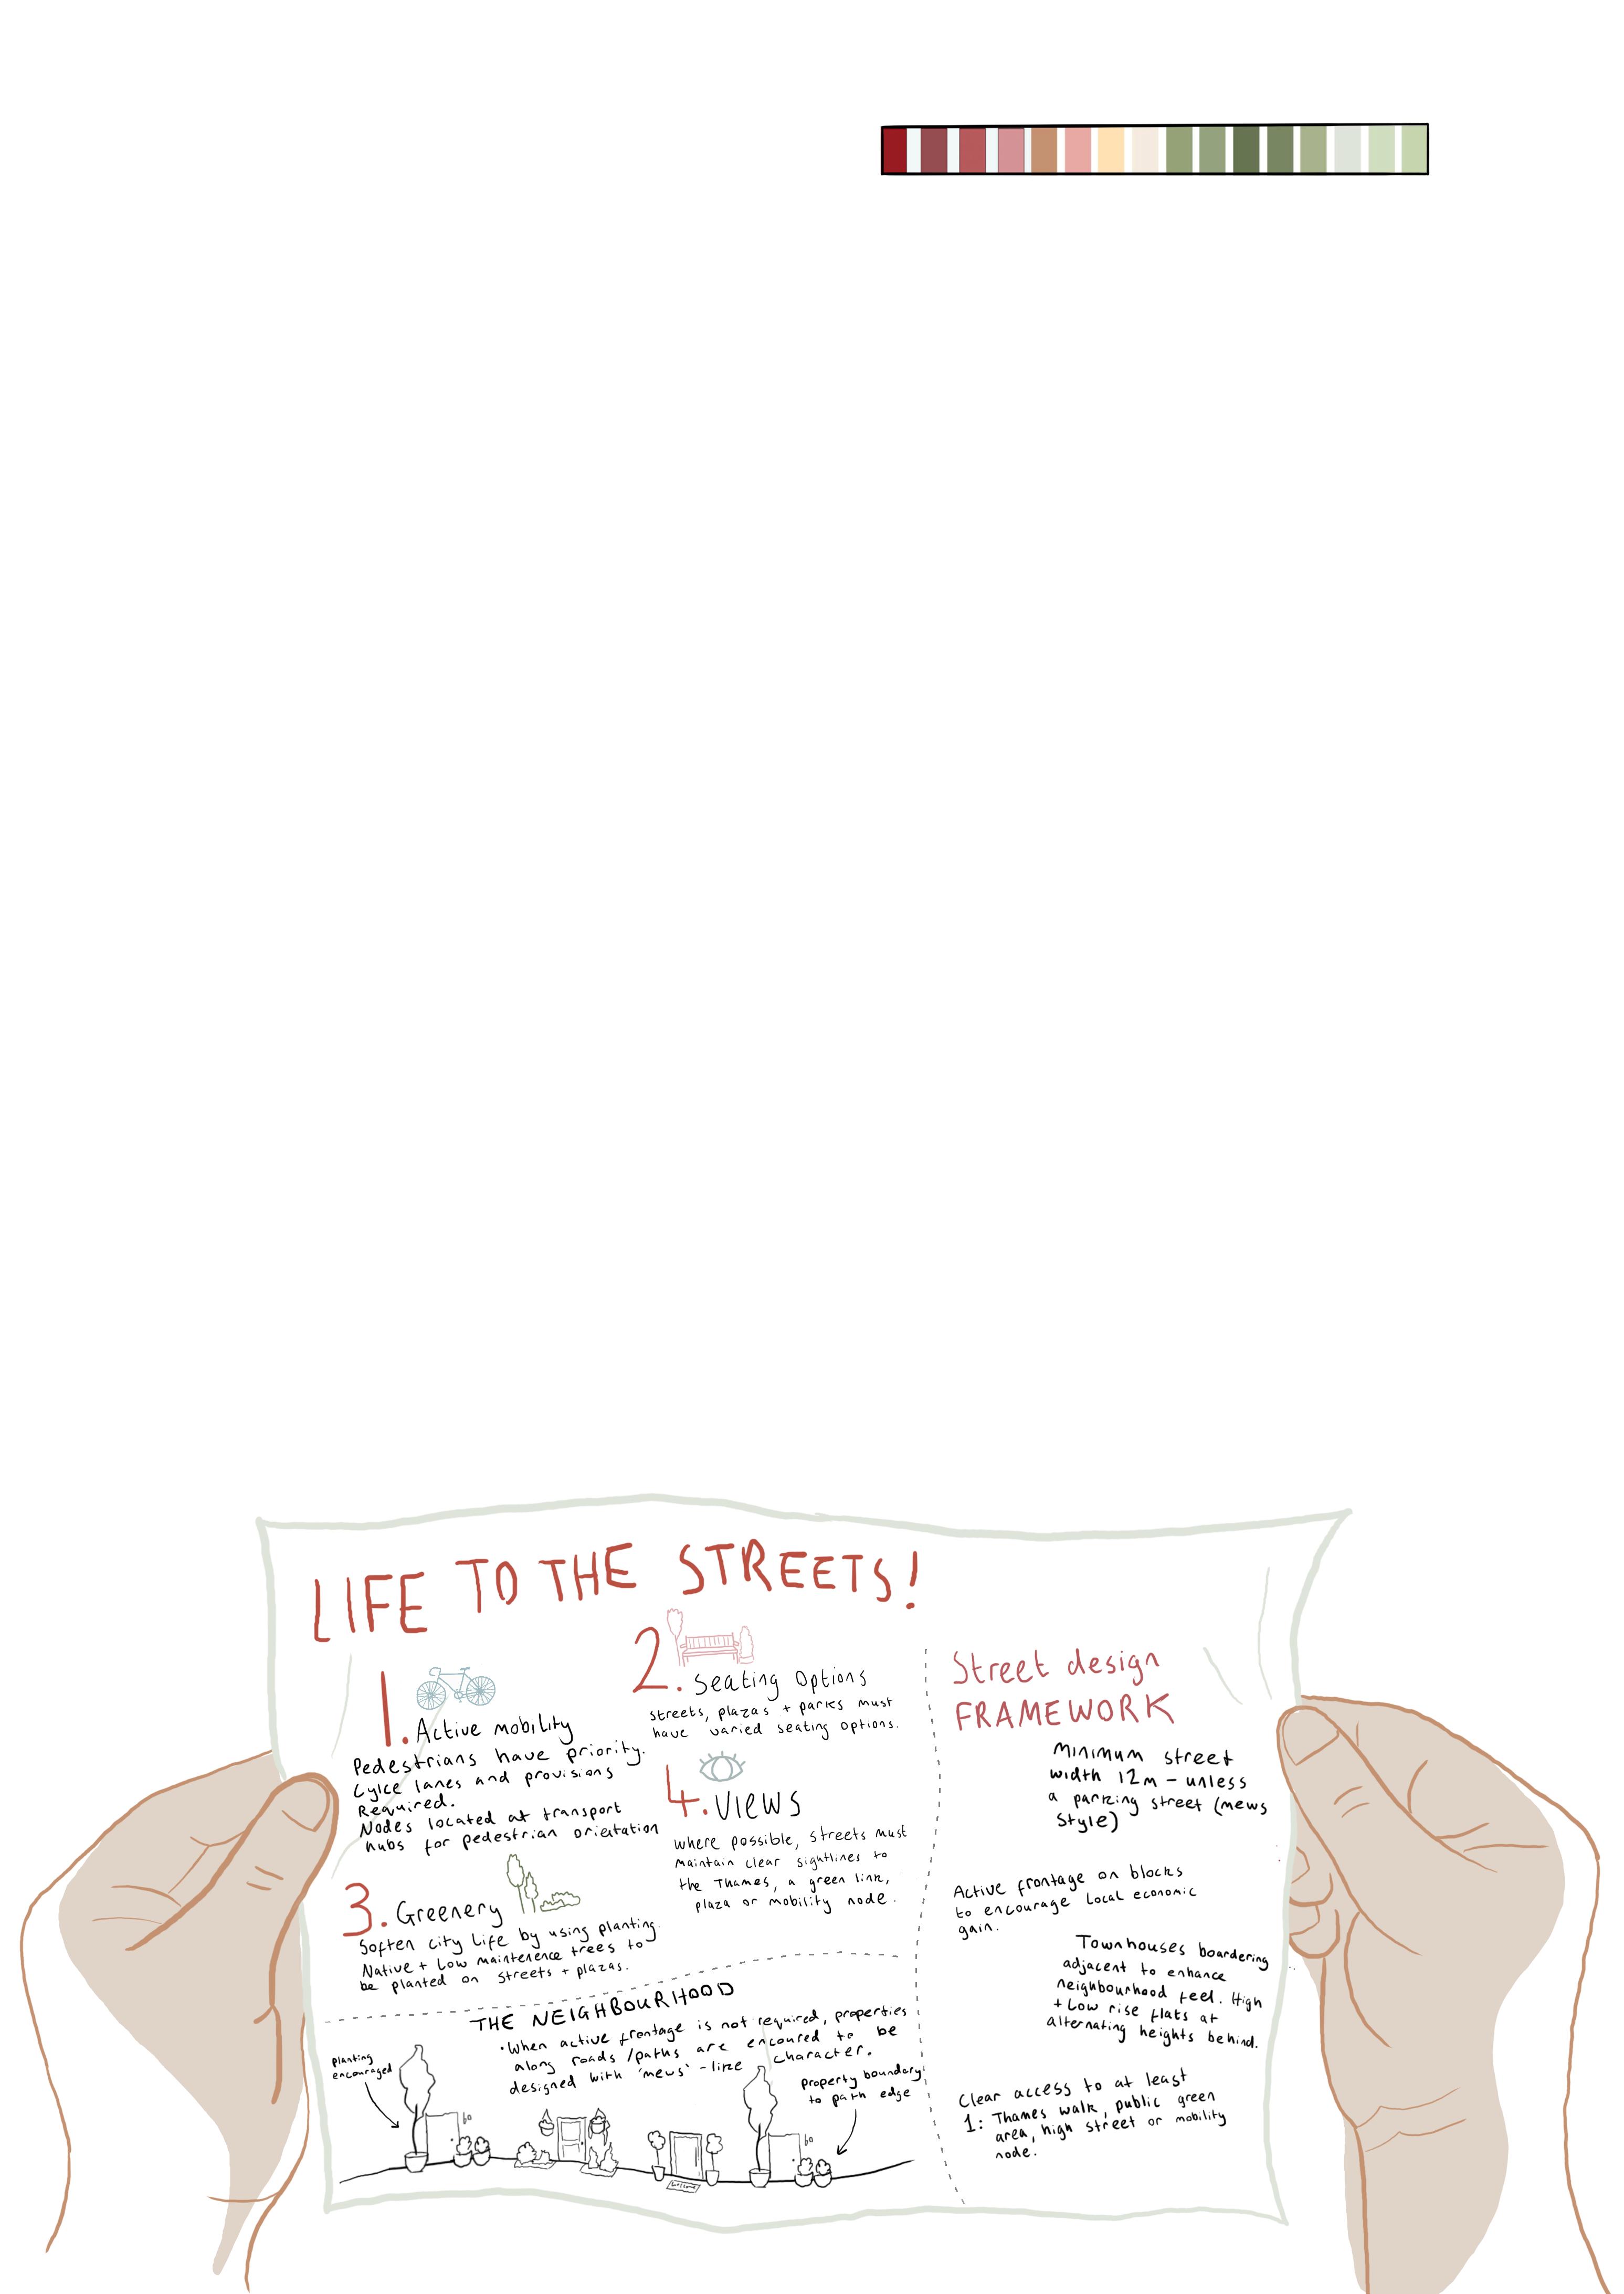 LIFE TO THE STREETS!
1. Active mobility
Pedestrians have priority.
Cylce lanes and provisions
Required.
Nodes located at transport
hubs for pedestrian orientation
2. Seating Options
streets, plazas + parks must
have varied seating options.
3. Greenery
Soften city life by using planting.
Native + Low maintenence trees to
be planted on streets + plazas.
4. Views
where possible, streets must
maintain clear sightlines to
the Thames, a green link,
plaza or mobility node.
THE NEIGHBOURHOOD
• When active frontage is not required, properties
along roads / paths are encoured to be
designed with 'mews' - like character.
planting
encouraged
property boundary
to path edge
Street design
FRAMEWORK
Minimum street
width 12m - unless
a parking street (mews
style)
Active frontage on blocks
to encourage local economic
gain.
Townhouses boardering
adjacent to enhance
neighbourhood feel. High
+ Low rise flats at
alternating heights behind.
Clear access to at least
1: Thames walk, public green
area, high street or mobility
node.